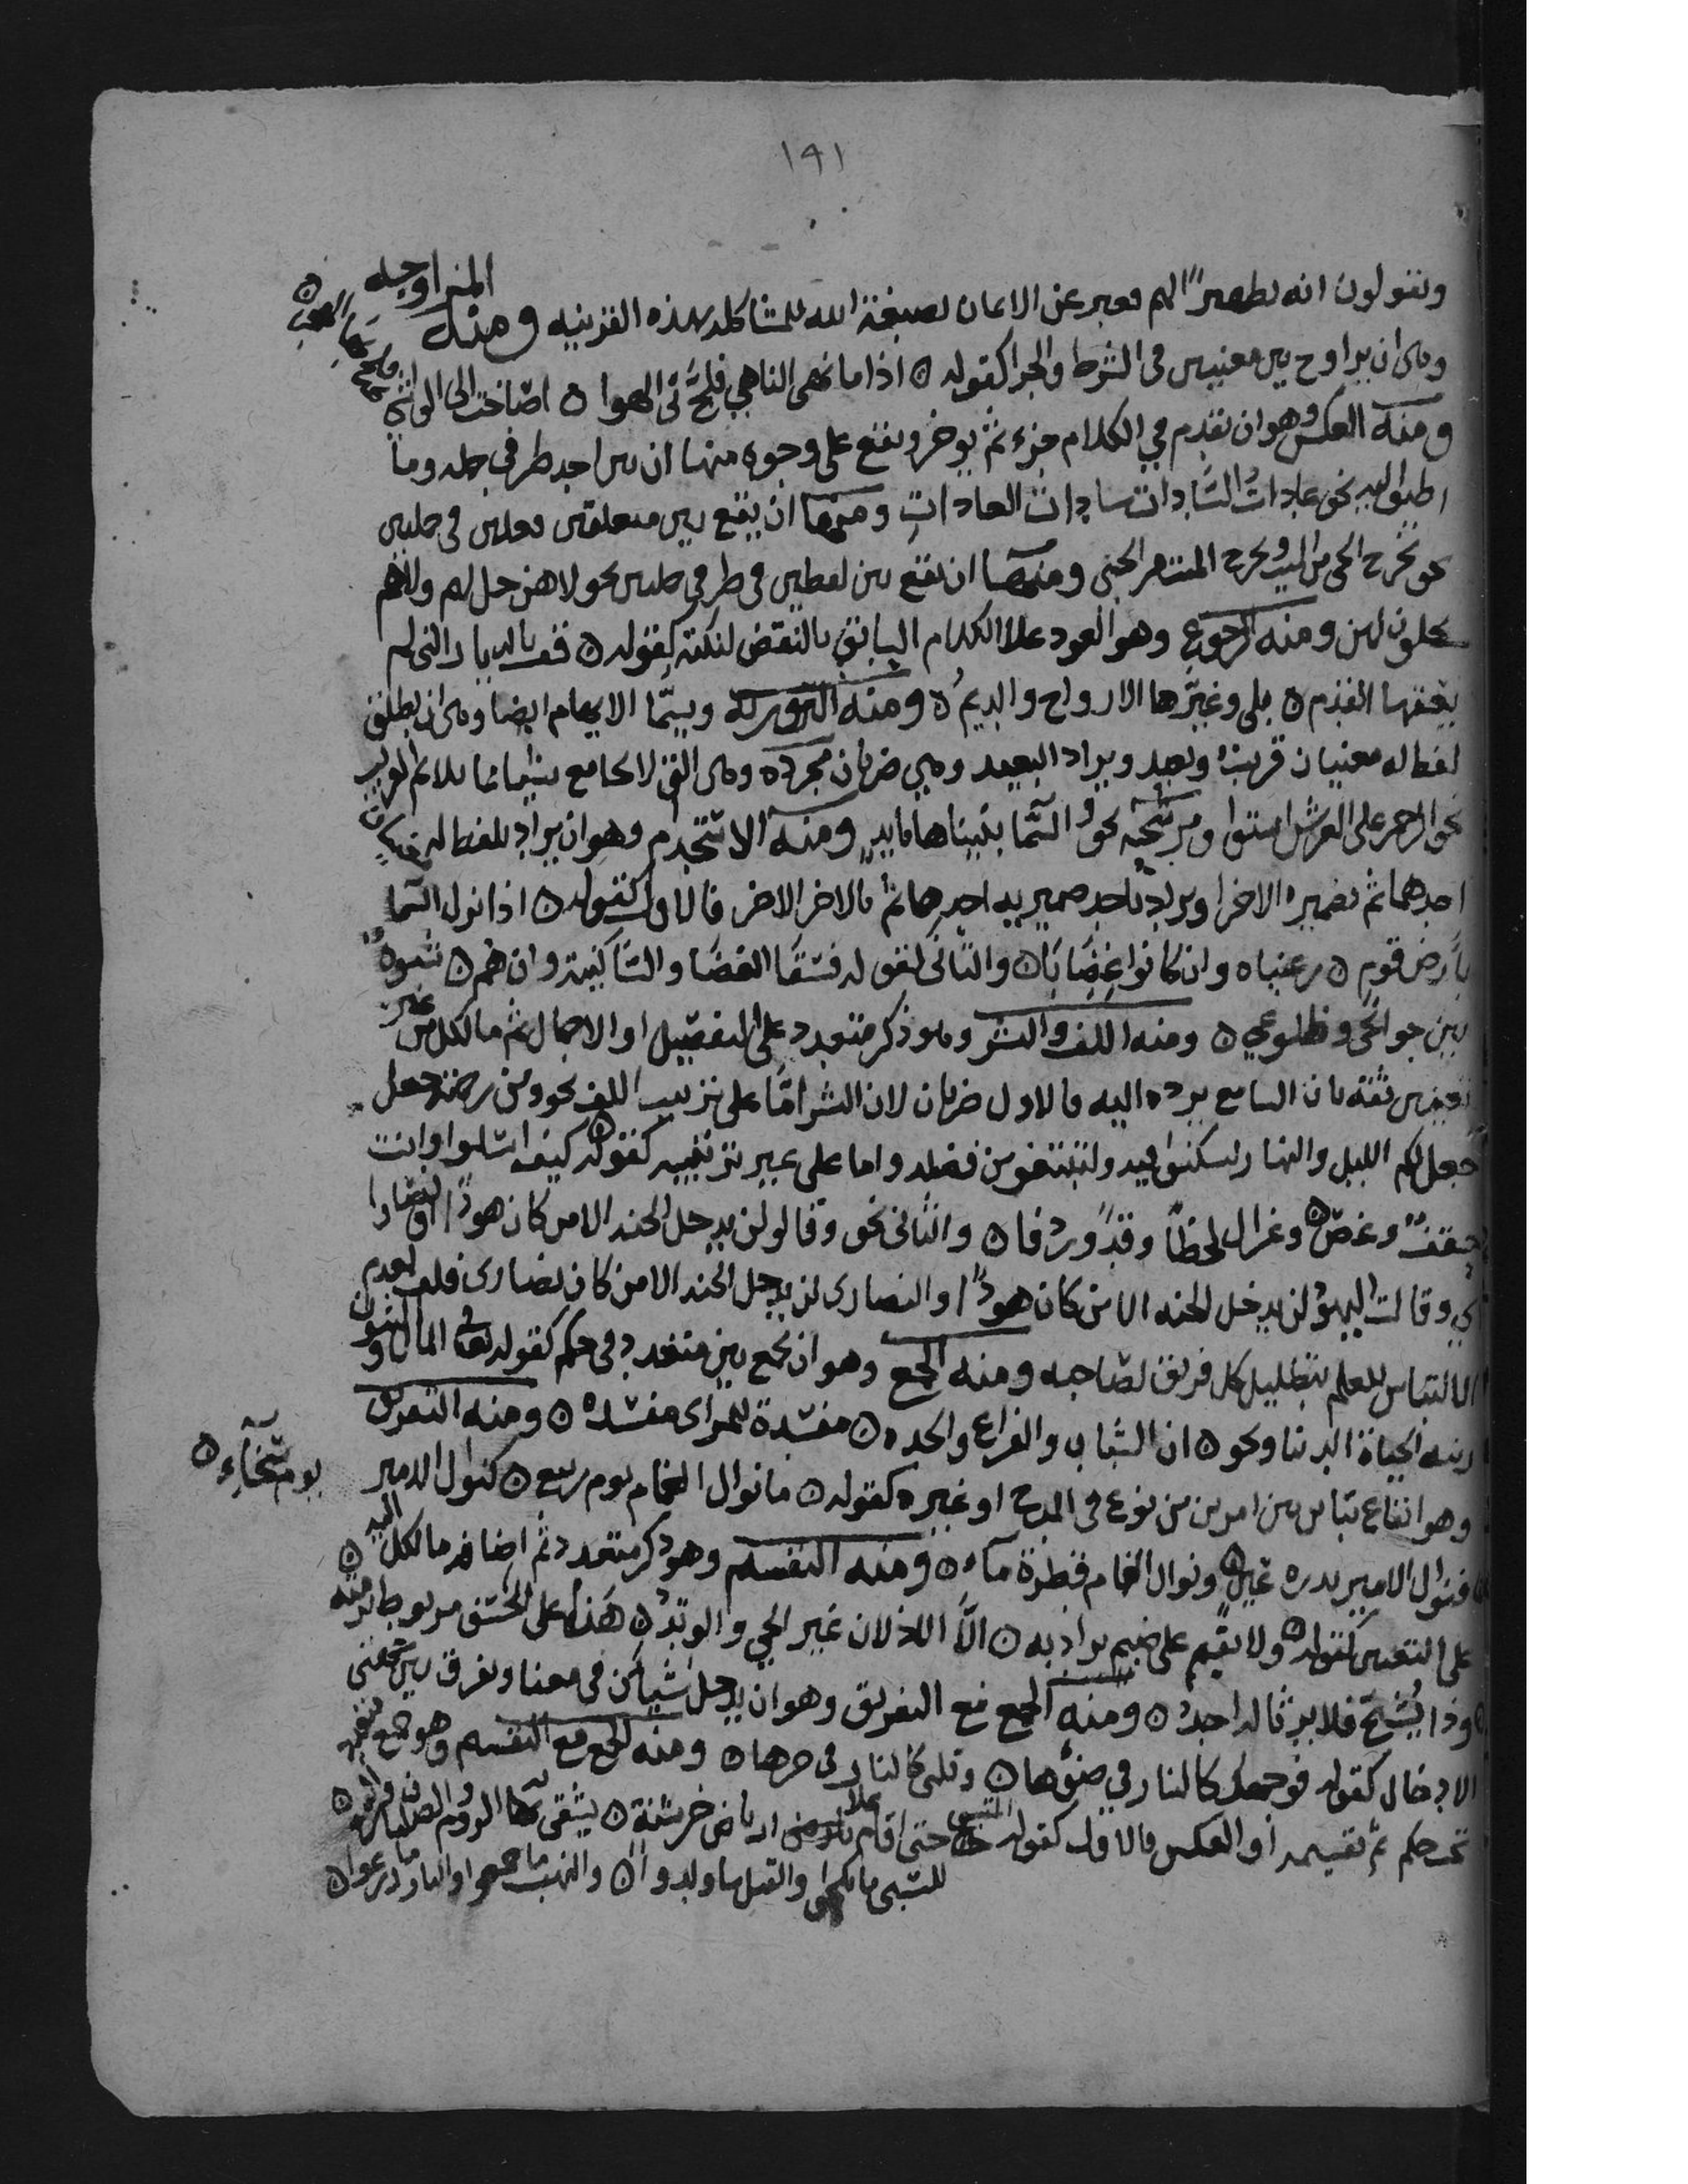 ١٩١
ويقولون انه تطهيرًا لهم فعبر عن الايمان بصبغة الله للمشاكله بهذه القرينيه ومنه المزاوجه
وهى ان يزاوج بين معنيين فى الشرط والجزا كقوله ه اذا ما نهى الناهي فلجَّ بى الهوا ه اصاخت الى الواشي فلج بها الهجر ه
ومنه العكس وهو ان تقدم في الكلام جزء ثم يوخر ويقع على وجوه منها ان بين احد طرفي جمله وما
اضيف اليه نحو عادات السَّادات سادات العادات ومنها ان يقع بين متعلقى فعلين في جملتين
نحو يخرج الحي من الميت ويخرج الميت من الحي ومنها ان يقع بين لفظين في طرفي جملتين نحو لا هن حل لهم ولا هم
يحلون لهن ومنه الرجوع وهو العود على الكلام السابق بالنقض لنكته كقوله ه قف بالديار التي لم
يعفها القدم ه بلى وغيَّرها الارواح والديمُ ه ومنه التوريه ويسمَّا الايهام ايضا وهى ان يطلق
لفظ له معنيان قريب وبعيد ويراد البعيد وهي ضربان مجرده وهى التى لا تجامع شيئا مما يلائم القريب
نحو الرحمن على العرش استوا ومرشحه نحو والسَّما بنيناها بايدٍ ومنه الاستخدام وهو ان يراد بلفظ له معنيان
احدهما ثم بضميره الاخر او يراد باحد ضميريه احدهما ثم بالاخر الاخر فالاول كقوله ه اذا نزل السَّما
بارض قوم ه رعيناه وان كانوا غِضَابَا ه والثانى كقوله فسقَا الغضَا والسَّاكنيه وان هُم ه شبوهُ
بين جوانحى وضلوعي ه ومنه اللف والنشر وهو ذكر متعدد على التفصيل او الاجمال ثم ما لكل من غير
تعيين ثقة بان السامع يرده اليه فالاول ضربان لان النشر امَّا على ترتيب اللف نحو ومن رحمته جعل
جعل لكم الليل والنهار لتسكنوا فيه ولتبتغو من فضله واما على غير ترتيبه كقوله ه كيف اسلوا وانت
حقفٌ وغصن ه وغزال لحظًا وقدًا وردفا ه والثانى نحو وقالو لن يدخل الجنه الا من كان هودًا او نصارا
اي وقالت اليهود لن يدخل الجنه الا من كان هودًا والنصارى لن يدخل الجنه الا من كان نصارى فلف لعدم
الالتباس للعلم بتضليل كل فريق لصاحبه ومنه الجمع وهو ان يجمع بين متعدد في حكم كقوله المال والبنون
زينه الحياة الدنيا ونحو ه ان الشباب والفراغ والجده ه مفسدة للمراى مفسده ه ومنه التفريق
وهو ايقاع تباين بين امرين من نوع فى المدح او غيره كقوله ه ما نوال الغمام يوم ربيع ه كنوال الامير يوم سَخَاءِ ه
فنوال الامير بدره عين ه ونوال الغمام قطرة مآء ه ومنه التقسيم وهو ذكر متعدد ثم اضافه ما لكل اليه ه
على التعيين كقوله ه ولا يقيم على ضيم يراد به ه الَّا الاذلان غير الحي والوتدُ ه هذا على الخسف مربوط برمته
وذا يُشج فلا يرثا له احدُ ه ومنه الجمع مع التفريق وهو ان يدخل شيأين في معنا ويفرق بين جهتى
الادخال كقوله فوجهك كالنار في ضوها ه وقلبي كالنار فى حرها ه ومنه الجمع مع التقسيم وهو جمع متعدد
تحت حكم ثم تقسيمه او العكس فالاول كقوله حتى اقام على ارباض خرشنة ه يشقى بها الروم والصلبان والبيع ه
للسبى ما نكحوا والقتل ما ولدوا ه والنهب ما جمعوا والنار ما زرعوا ه